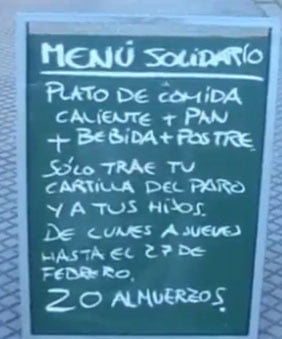 MENÚ SOLIDARIO
PLATO DE COMIDA
CALIENTE + PAN
+ BEBIDA + POSTRE
SÓLO TRAE TU
CARTILLA DEL PARO
Y A TUS HIJOS.
DE LUNES A JUEVES
HASTA EL 27 DE
FEBRERO.
20 ALMUERZOS.